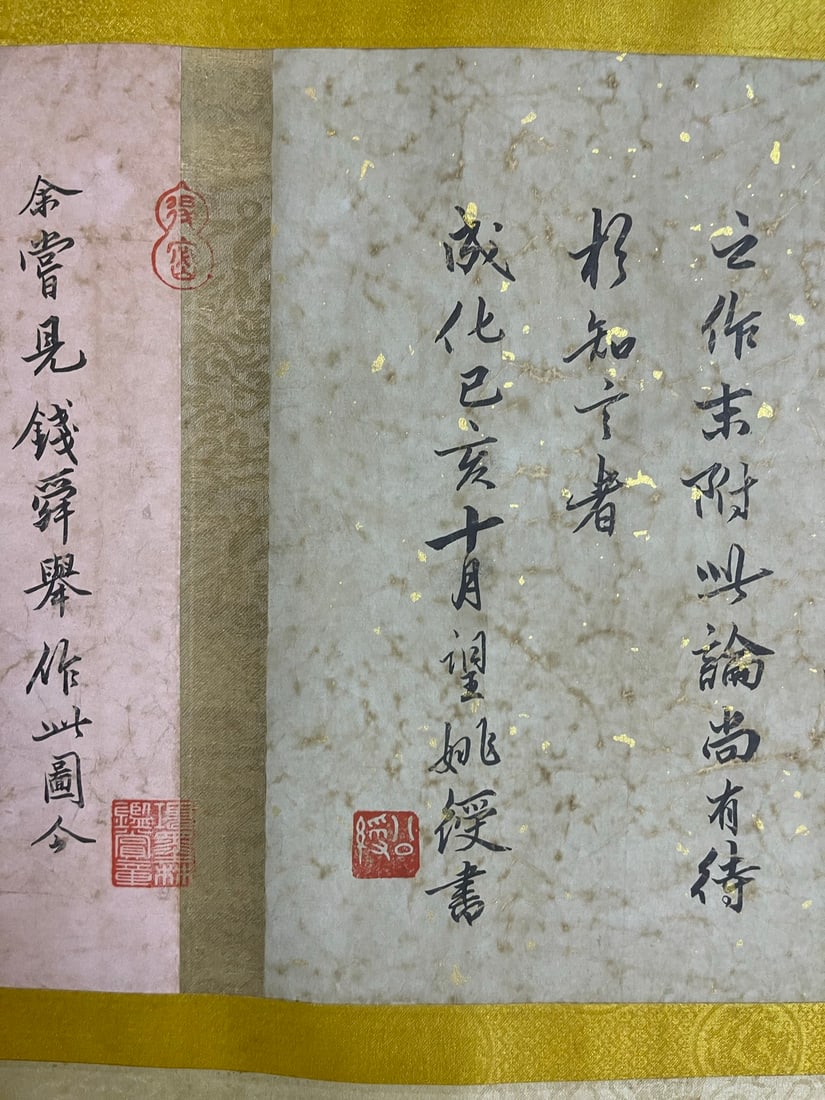 之作末附此論尚有待
於知言者
成化己亥十月望姚綬書
公綬
余嘗見錢舜舉作此圖今